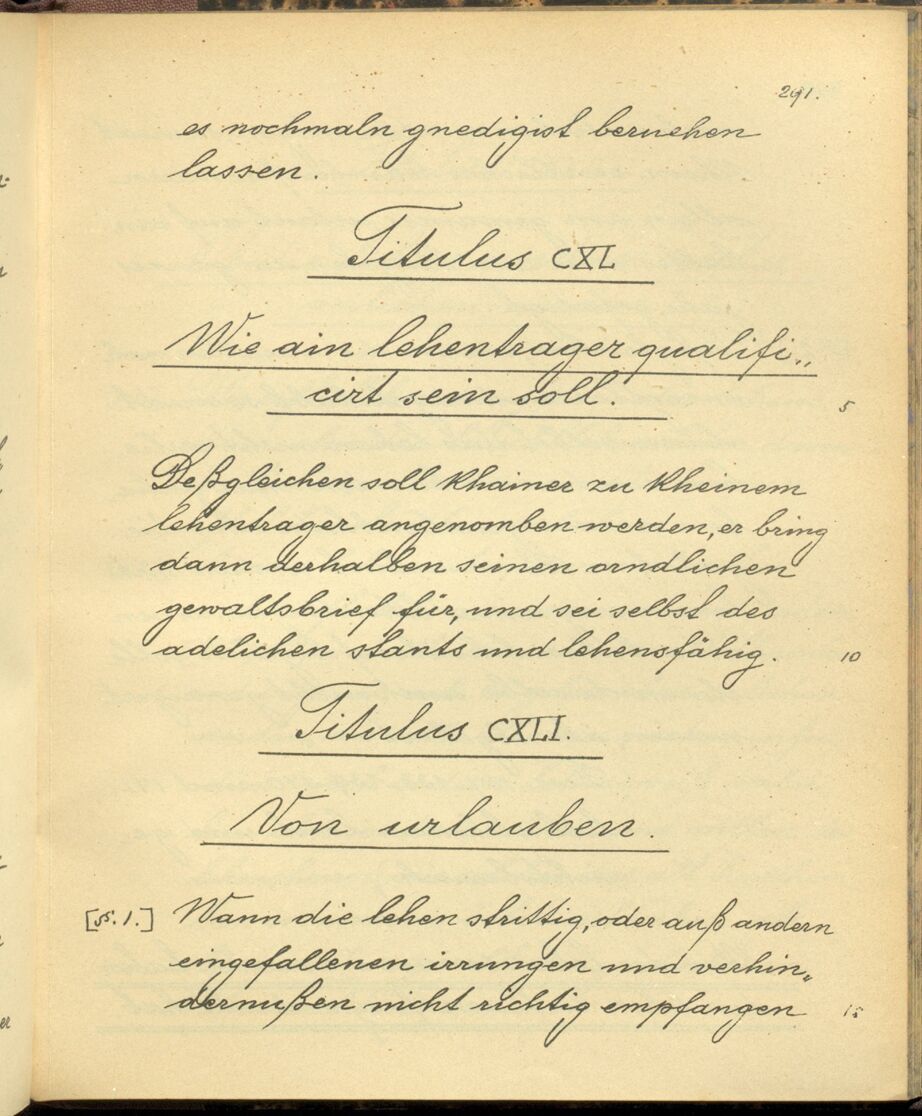 291.
es nochmaln gnedigist beruehen
lassen.
Titulus CXL
Wie ain lehentrager qualifi„
cirt sein soll.
5
Deßgleichen soll khainer zu kheinem
lehentrager angenomben werden, er bring
dann derhalben seinen orndlichen
gewaltsbrief für, und sei selbst des
adelichen stants und lehensfähig.
10
Titulus CXLI.
Von urlauben.
[§. 1.] Wann die lehen strittig, oder auß andern
eingefallenen irrungen und verhin„
dernußen nicht richtig empfangen
15